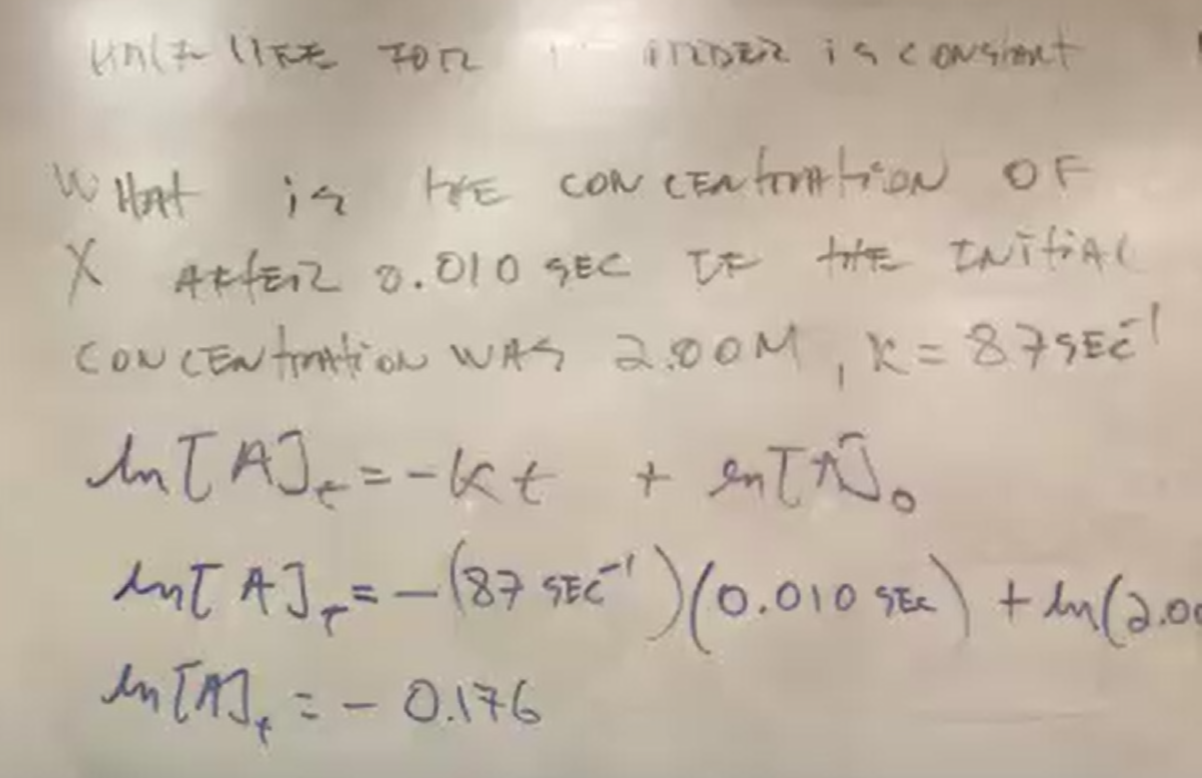 HALF LIFE FOR 1 ORDER is constant
WHAT is THE CONCENtration OF
X AFTER 0.010 SEC IF THE INitiAL
CONCENtration WAS 2.00M, K = 87 SEC⁻¹
ln[A]ₜ = -kt + ln[A]₀
ln[A]ₜ = -(87 SEC⁻¹)(0.010 SEC) + ln(2.00
ln[A]ₜ = - 0.176